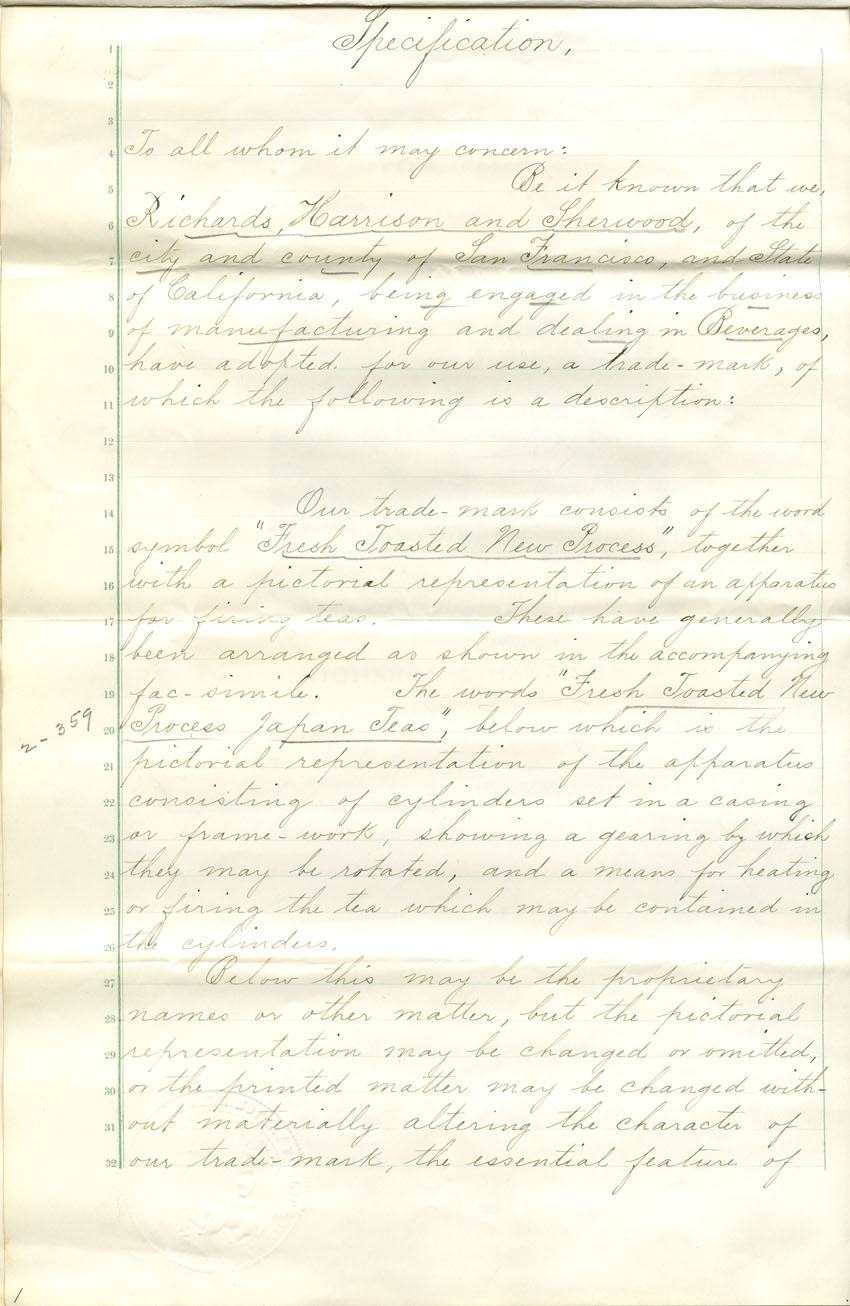 Specification.
1
2
3
4 To all whom it may concern:
5 Be it known that we,
6 Richards, Harrison and Sherwood, of the
7 city and county of San Francisco, and State
8 of California, being engaged in the business
9 of manufacturing and dealing in Beverages,
10 have adopted for our use, a trade-mark, of
11 which the following is a description:
12
13
14 Our trade-mark consists of the word
15 symbol "Fresh Toasted New Process", together
16 with a pictorial representation of an apparatus
17 for firing teas. These have generally
18 been arranged as shown in the accompanying
19 fac-simile. The words "Fresh Toasted New
20 Process Japan Teas", below which is the
2-359
21 pictorial representation of the apparatus
22 consisting of cylinders set in a casing
23 or frame-work, showing a gearing by which
24 they may be rotated, and a means for heating
25 or firing the tea which may be contained in
26 the cylinders.
27 Below this may be the proprietary
28 names or other matter, but the pictorial
29 representation may be changed or omitted,
30 or the printed matter may be changed with-
31 out materially altering the character of
32 our trade-mark, the essential feature of
1